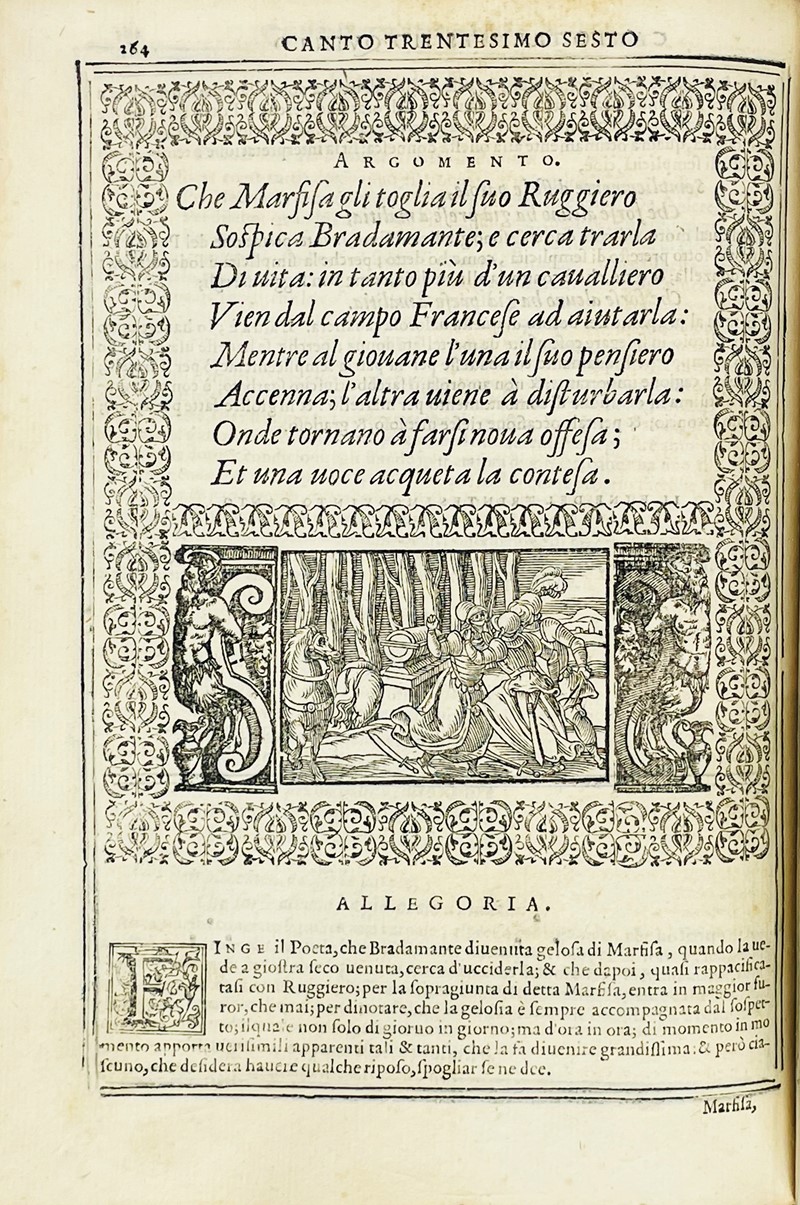 264
CANTO TRENTESIMO SESTO
ARGOMENTO.
Che Marfiſa gli toglia il ſuo Ruggiero
Soſpica Bradamante; e cerca trarla
Di uita: in tanto più d'un caualliero
Vien dal campo Franceſe ad aiutarla:
Mentre al giouane l'una il ſuo penſiero
Accenna; l'altra uiene à diſturbarla:
Onde tornano à farſi noua offeſa;
Et una uoce acqueta la conteſa.
ALLEGORIA.
FINGE il Poeta, che Bradamante diuenuta geloſa di Marfiſa, quando la ue-
de a gioſtra ſeco uenuta, cerca d'ucciderla; & che dapoi, quaſi rappacifica-
taſi con Ruggiero; per la ſopragiunta di detta Marfiſa, entra in maggior fu-
ror, che mai; per dinotare, che la geloſia è ſempre accompagnata dal ſoſpet-
to; ilquale non ſolo di giorno in giorno; ma d'ora in ora; di momento in mo
mento apporta ueriſimili apparenti tali & tanti, che la fa diuenire grandiſſima. & però cia-
ſcuno, che deſidera hauere qualche ripoſo, ſpogliar ſe ne dee.
Marfiſa,